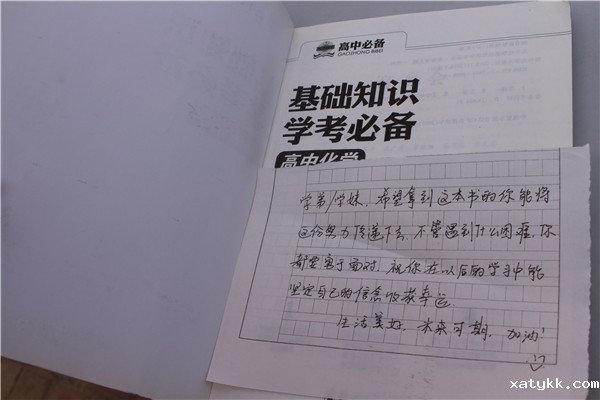 高中必备
GAOZHONG BIBEI
基础知识
学考必备
高中化学
学弟/学妹，希望拿到这本书的你能将
这份努力传递下去，不管遇到什么困难，你
都要勇于面对，祝你在以后的学习中能
坚定自己的信念收获幸运。
生活美好，未来可期，加油！
xatykk.com